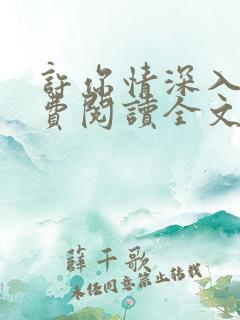 許你情深入
費閱讀全文
薛千歌
未經同意禁止转载